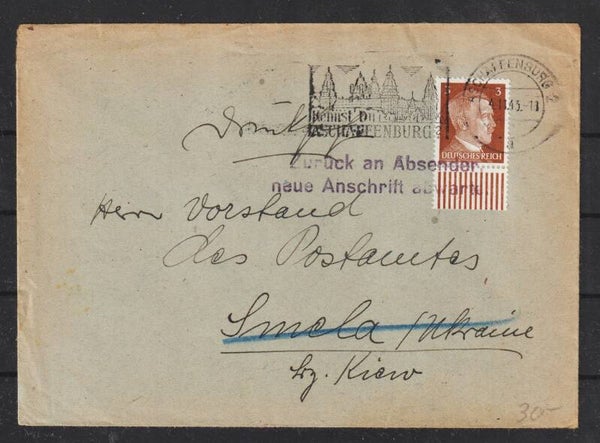 Kennst Du
ASCHAFFENBURG?
ASCHAFFENBURG 2
3 3
DEUTSCHES REICH
Zurück an Absender
neue Anschrift abwarten
Herrn Vorstand
des Postamtes
Smela / Ukraine
Bz. Kiew
30-